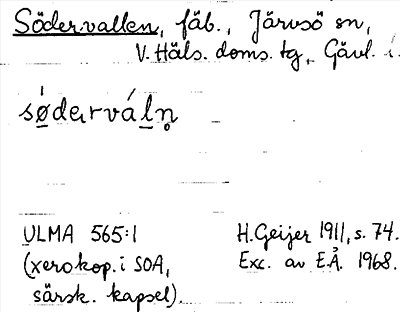 Södervallen, fäb., Järvsö sn,
V. Häls. doms. tg, Gävl. l.
sǿdərváln̥
ULMA 565:1
(xerokop. i SOA,
särsk. kapsel).
H. Geijer 1911, s. 74.
Exc. av E.Å. 1968.